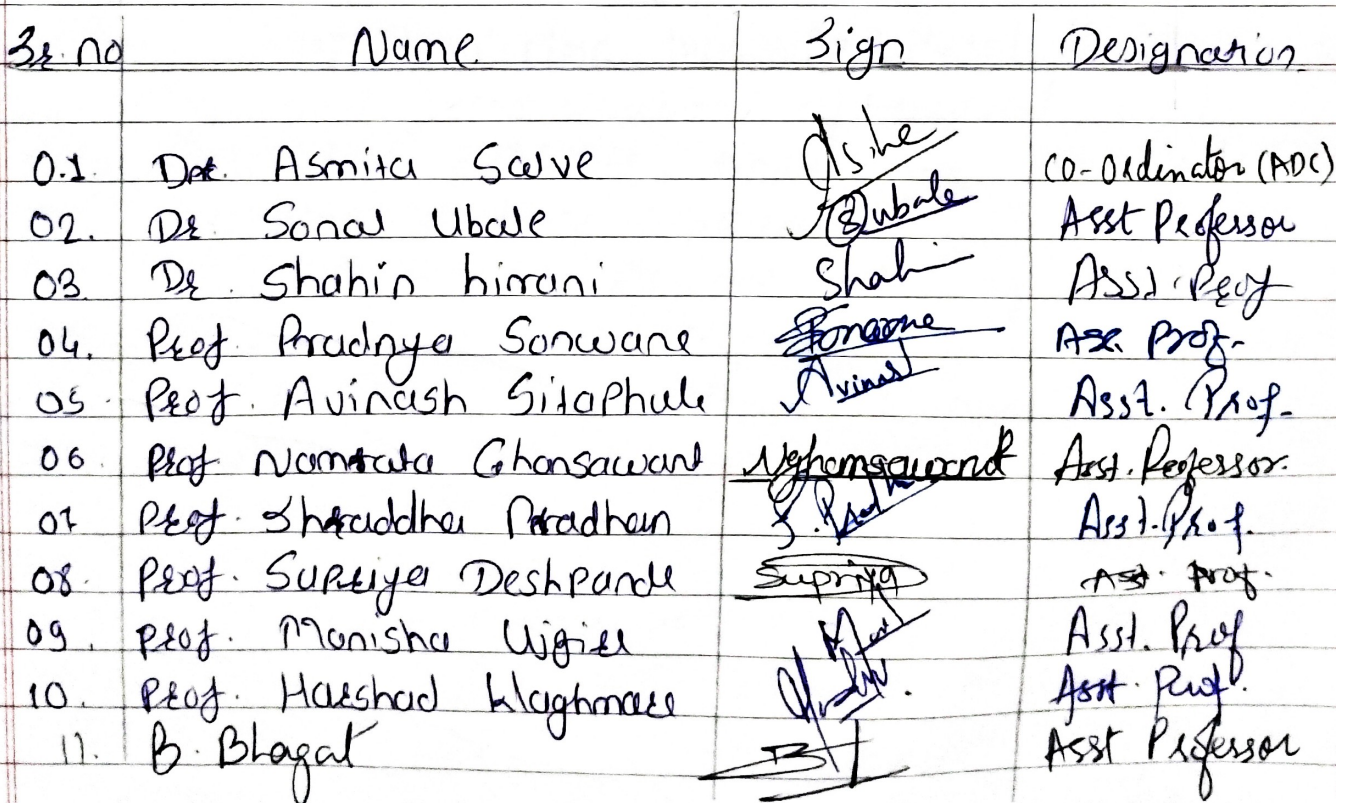 Sr. no Name Sign Designation
0.1. Dr. Asmita Salve CO-Ordinator (ADC)
02. Dr Sonal Ubale Subale Asst Professor
03. Dr. Shahin hirani Shah Asst. Prof
04. Prof. Pradnya Sonwane Sonaone Ass. Prof.
05. Prof. Avinash Sitaphule Avinash Asst. Prof.
06. Prof Namrata Ghansawant Nghansawant Asst. Professor.
07 Prof. Shraddha Pradhan S. Pradhan Asst. Prof.
08. Prof. Supriya Deshpande Supriya Asst. Prof.
09. Prof. Manisha Asst. Prof
10. Prof. Harshad Waghmare Asst. Prof.
11. B. Bhagat B Asst Professor